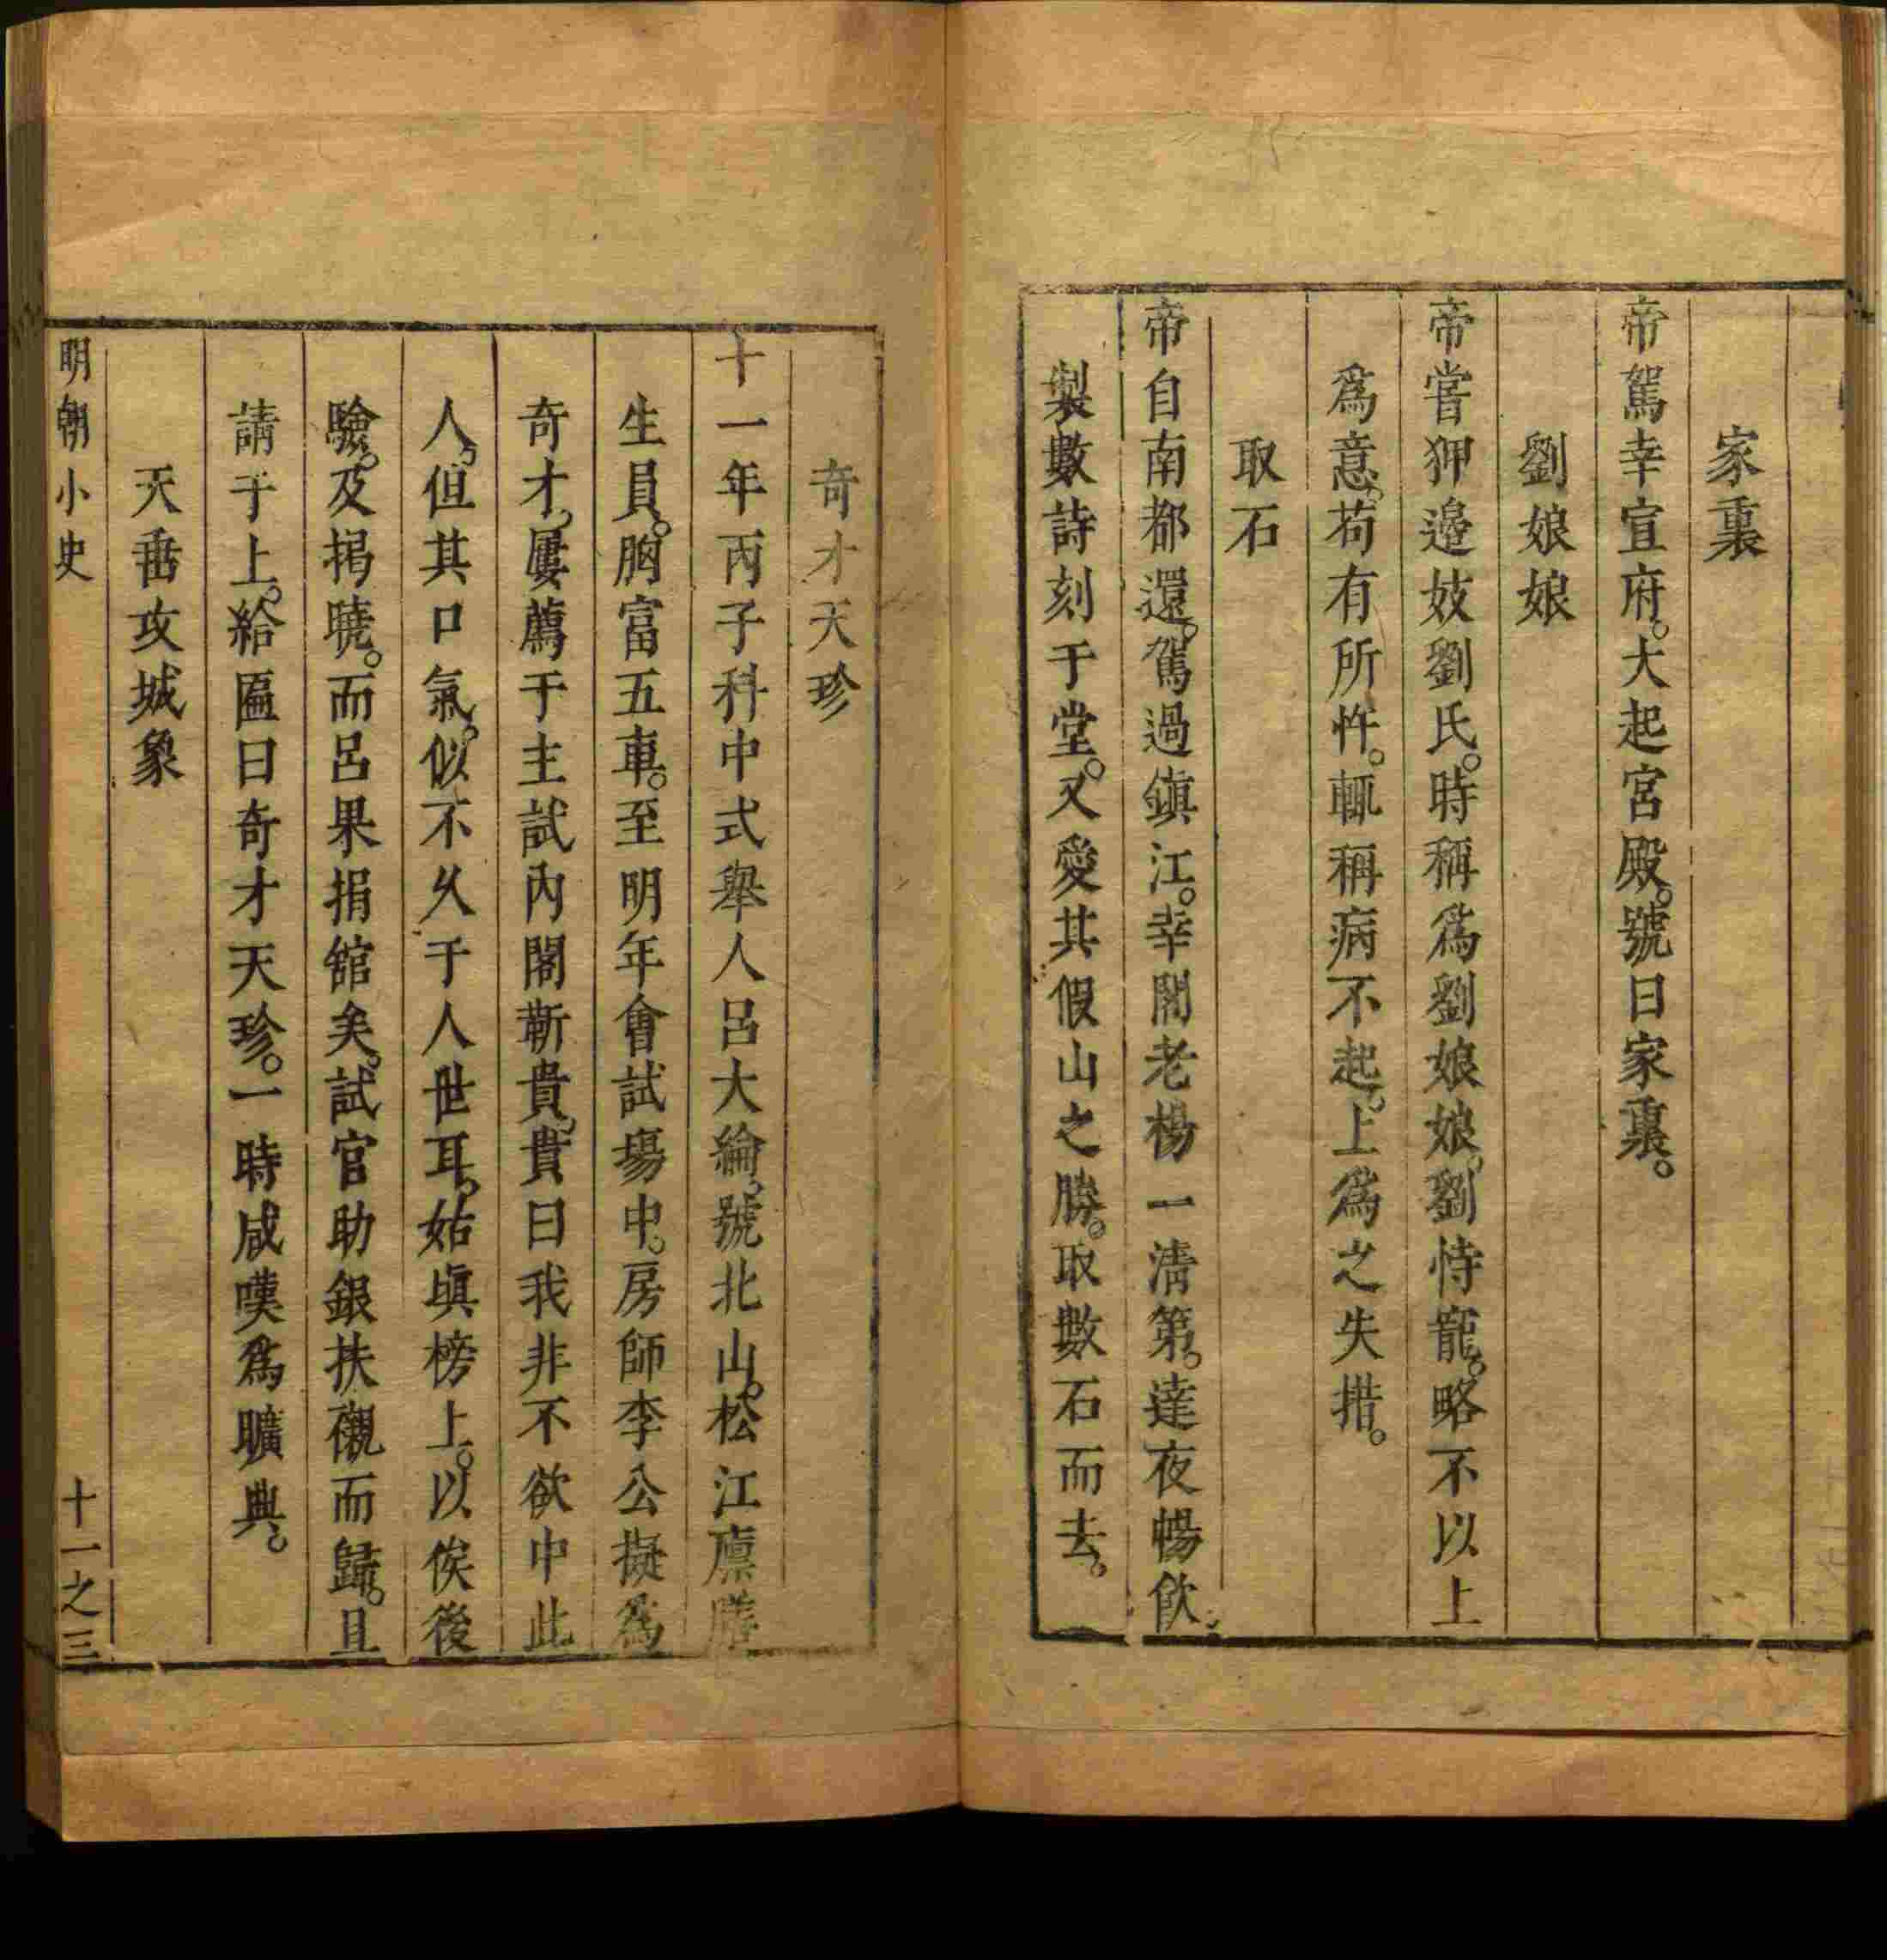 家裏
帝駕幸宣府。大起宮殿。號曰家裏。
劉娘娘
帝嘗狎邉妓劉氏。時稱爲劉娘娘。劉恃寵。略不以上
爲意。苟有所忤。輒稱病不起。上爲之失措。
取石
帝自南都還。駕過鎮江。幸閣老楊一清第。達夜暢飲。
製數詩刻于堂。又愛其假山之勝。取數石而去。
奇才天珍
十一年丙子科中式舉人呂大綸。號北山。松江廪膳
生員。胸富五車。至明年會試塲中。房師李公擬爲
奇才。屢薦于主試內閣靳貴。貴曰我非不欲中此
人。但其口氣。似不久于人世耳。姑塡榜上。以俟後
驗。及揭曉。而呂果捐舘矣。試官助銀扶櫬而歸。且
請于上。給匾曰奇才天珍。一時咸嘆爲曠典。
天垂攻城象
明朝小史
十一之三